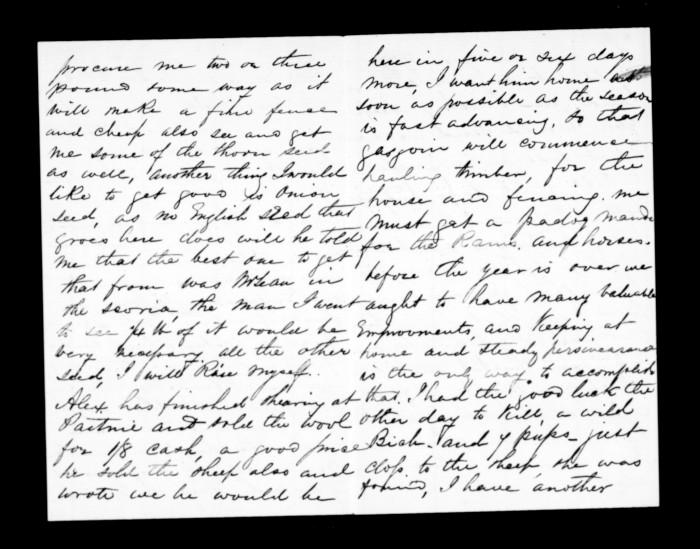 procure me two or three
pound some way as it
will make a fine fence
and cheap also see and get
me some of the thorn seed
as well, another thing I would
like to get good is Onion
seed, as no English seed that
groes here does well he told
me that the best one to get
that from was McLean in
the scoria, the man I went
to see 4 lb of it would be
very necessary all the other
seed, I will Rise myself.
Alex has finished shearing at
and sold the wool
for 1/8 cash, a good price
he sold the sheep also and
wrote we he would be
here in five or six days
more, I want him home as
soon as possible as the season
is fast advancing, so that
Gasgoin will commence
hauling timber, for the
house and fencing. we
must get a padog made
for the Rams. and horses.
before the year is over we
aught to have many valuable
Emprovments, and Keeping at
home and steady perseverance
is the only way to accomplish
that. I had the good luck the
other day to Kill, a wild
Bich. and 4 pups just
clos. to the sheep, she was
found, I have another